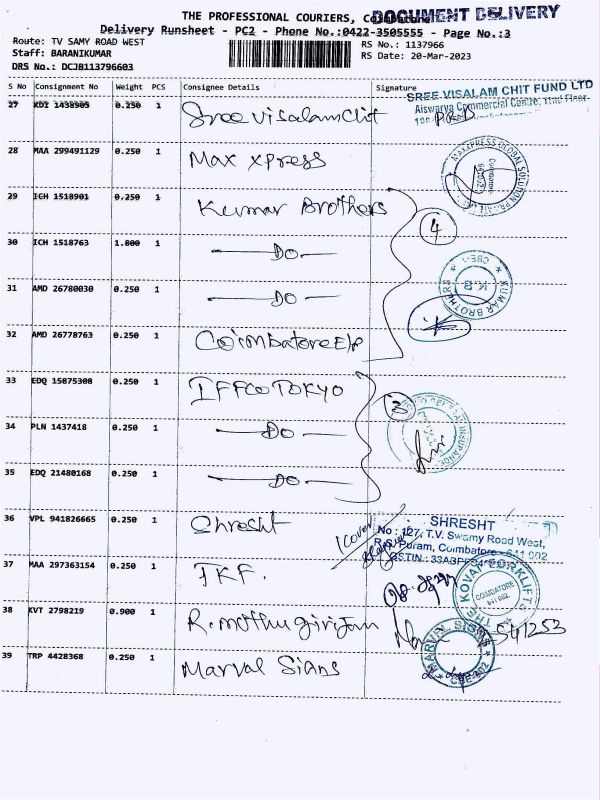 THE PROFESSIONAL COURIERS, Coimbatore
DOCUMENT DELIVERY
Delivery Runsheet - PC2 - Phone No.:0422-3505555 - Page No.:3
Route: TV SAMY ROAD WEST
RS No.: 1137966
Staff: BARANIKUMAR
RS Date: 20-Mar-2023
DRS No.: DCJB113796603
S No Consignment No Weight PCS Consignee Details Signature
SREE VISALAM CHIT FUND LTD
Aiswarya Commercial Centre, IInd Floor
27 KDI 1438905 0.250 1 Sree visalam chit
28 MAA 299491129 0.250 1 Max xpress
MAXXPRESS GLOBAL SOLUTION
29 ICH 1518901 0.250 1 Kumar Brothers
4
30 ICH 1518763 1.800 1 DO
KUMAR BROTHERS
K.B
CBE-1
31 AMD 26780030 0.250 1 DO
32 AMD 26778763 0.250 1 Coimbatore E/P
33 EDQ 15875308 0.250 1 IFFCO TOKYO
3
34 PLN 1437418 0.250 1 DO
35 EDQ 21480168 0.250 1 DO
36 VPL 941826665 0.250 1 Shresht
1 cover
SHRESHT
No : 127, T.V. Swamy Road West,
Puram, Coimbatore - 641 002
GSTIN : 33ABF
37 MAA 297363154 0.250 1 TKF.
THE KOVAI FORKLIFTS
COIMBATORE
641 002
38 KVT 2798219 0.900 1 R. mothugirijam
541253
39 TRP 4428368 0.250 1 Marval Sians
MARVAL SIGNS